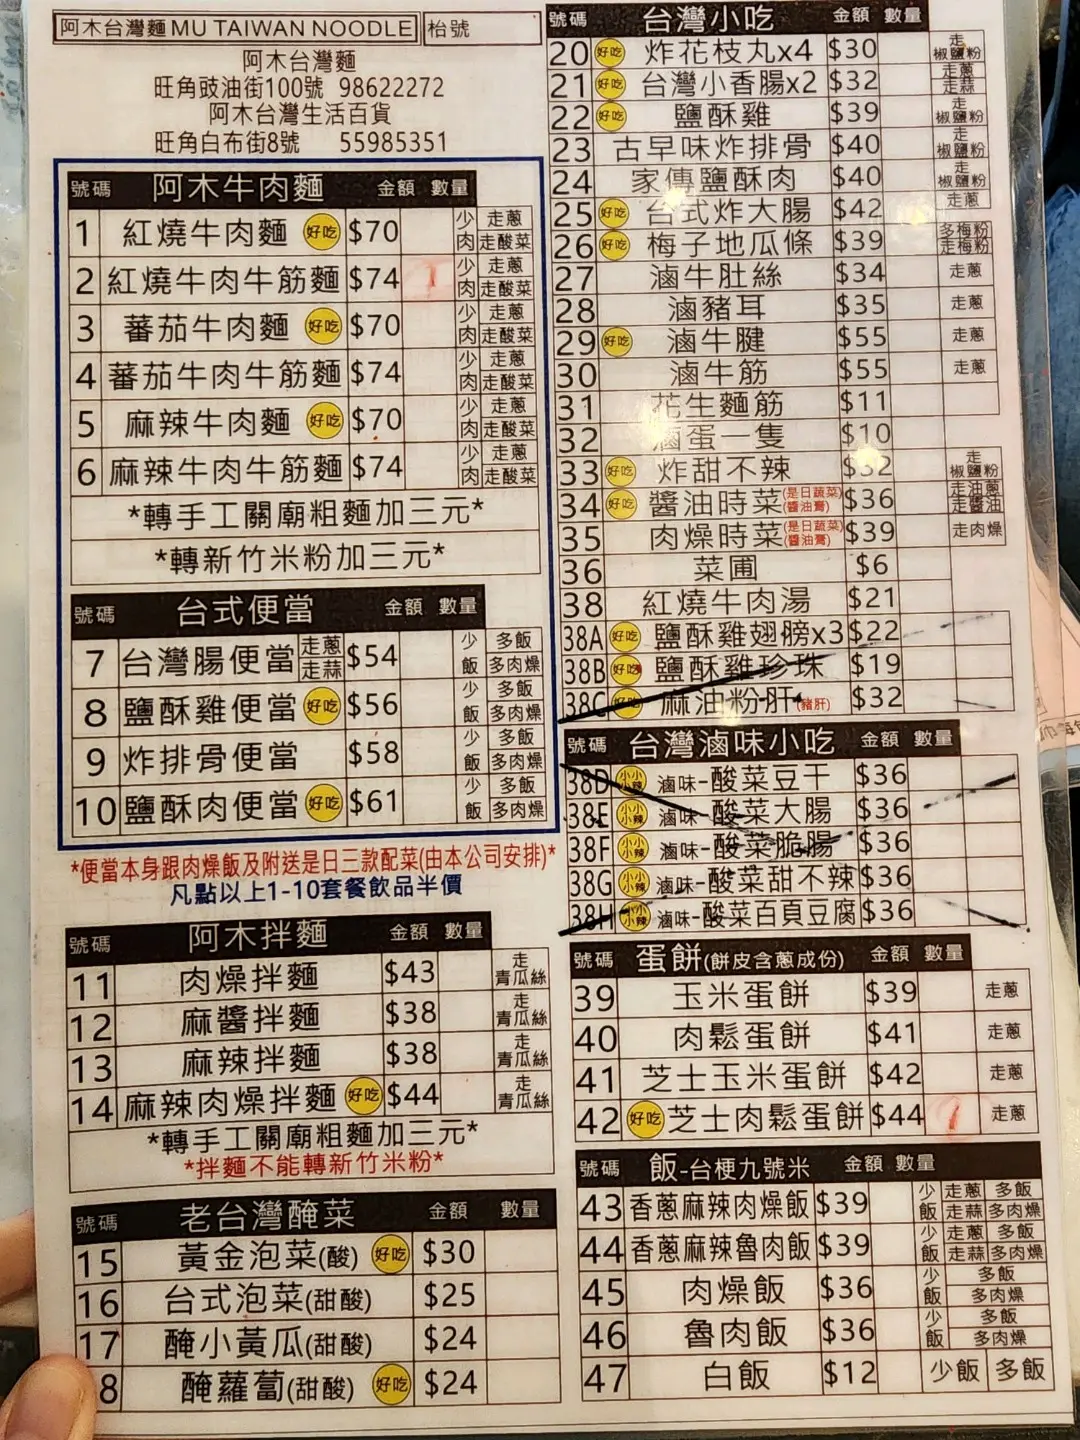 阿木台灣麵 MU TAIWAN NOODLE 枱號
阿木台灣麵
旺角豉油街100號 98622272
阿木台灣生活百貨
旺角白布街8號 55985351
號碼 阿木牛肉麵 金額 數量
1 紅燒牛肉麵 好吃 $70 少肉 走蔥 走酸菜
2 紅燒牛肉牛筋麵 $74 1 少肉 走蔥 走酸菜
3 蕃茄牛肉麵 好吃 $70 少肉 走蔥 走酸菜
4 蕃茄牛肉牛筋麵 $74 少肉 走蔥 走酸菜
5 麻辣牛肉麵 好吃 $70 少肉 走蔥 走酸菜
6 麻辣牛肉牛筋麵 $74 少肉 走蔥 走酸菜
*轉手工關廟粗麵加三元*
*轉新竹米粉加三元*
號碼 台式便當 金額 數量
7 台灣腸便當 走蔥 走蒜 $54 少飯 多飯 多肉燥
8 鹽酥雞便當 好吃 $56 少飯 多飯 多肉燥
9 炸排骨便當 $58 少飯 多飯 多肉燥
10 鹽酥肉便當 好吃 $61 少飯 多飯 多肉燥
*便當本身跟肉燥飯及附送是日三款配菜(由本公司安排)*
凡點以上1-10套餐飲品半價
號碼 阿木拌麵 金額 數量
11 肉燥拌麵 $43 走青瓜絲
12 麻醬拌麵 $38 走青瓜絲
13 麻辣拌麵 $38 走青瓜絲
14 麻辣肉燥拌麵 好吃 $44 走青瓜絲
*轉手工關廟粗麵加三元*
*拌麵不能轉新竹米粉*
號碼 老台灣醃菜 金額 數量
15 黃金泡菜(酸) 好吃 $30
16 台式泡菜(甜酸) $25
17 醃小黃瓜(甜酸) $24
8 醃蘿蔔(甜酸) 好吃 $24
號碼 台灣小吃 金額 數量
20 好吃 炸花枝丸x4 $30 走椒鹽粉
21 好吃 台灣小香腸x2 $32 走蔥 走蒜
22 好吃 鹽酥雞 $39 走椒鹽粉
23 古早味炸排骨 $40 走椒鹽粉
24 家傳鹽酥肉 $40 走椒鹽粉
25 好吃 台式炸大腸 $42 走蔥
26 好吃 梅子地瓜條 $39 多梅粉 走梅粉
27 滷牛肚絲 $34 走蔥
28 滷豬耳 $35 走蔥
29 好吃 滷牛腱 $55 走蔥
30 滷牛筋 $55 走蔥
31 花生麵筋 $11
32 滷蛋一隻 $10
33 好吃 炸甜不辣 $32 走椒鹽粉
34 好吃 醬油時菜(是日蔬菜)(醬油膏) $36 走油蔥 走醬油
35 肉燥時菜(是日蔬菜)(醬油膏) $39 走肉燥
36 菜圃 $6
38 紅燒牛肉湯 $21
38A 好吃 鹽酥雞翅膀x3 $22
38B 好吃 鹽酥雞珍珠 $19
38C 好吃 麻油粉肝(豬肝) $32
號碼 台灣滷味小吃 金額 數量
38D 小小小辣 滷味-酸菜豆干 $36
38E 小小小辣 滷味-酸菜大腸 $36
38F 小小小辣 滷味-酸菜脆腸 $36
38G 小小小辣 滷味-酸菜甜不辣 $36
38H 小小小辣 滷味-酸菜百頁豆腐 $36
號碼 蛋餅(餅皮含蔥成份) 金額 數量
39 玉米蛋餅 $39 走蔥
40 肉鬆蛋餅 $41 走蔥
41 芝士玉米蛋餅 $42 走蔥
42 好吃 芝士肉鬆蛋餅 $44 1 走蔥
號碼 飯-台梗九號米 金額 數量
43 香蔥麻辣肉燥飯 $39 少飯 走蔥 多飯 走蒜 多肉燥
44 香蔥麻辣魯肉飯 $39 少飯 走蔥 多飯 走蒜 多肉燥
45 肉燥飯 $36 少飯 多飯 多肉燥
46 魯肉飯 $36 少飯 多飯 多肉燥
47 白飯 $12 少飯 多飯